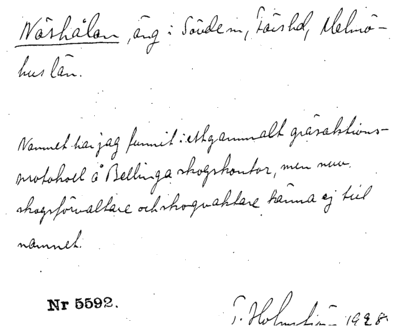 Näshålan, äng i Sövde sn, Färs hd, Malmö-
hus län.
Namnet har jag funnit i ett gammalt gräsauktions-
protokoll å Bellinga skogskontor, men nuv.
skogsförvaltare och skogvaktare känna ej till
namnet.
Nr 5592.
1928